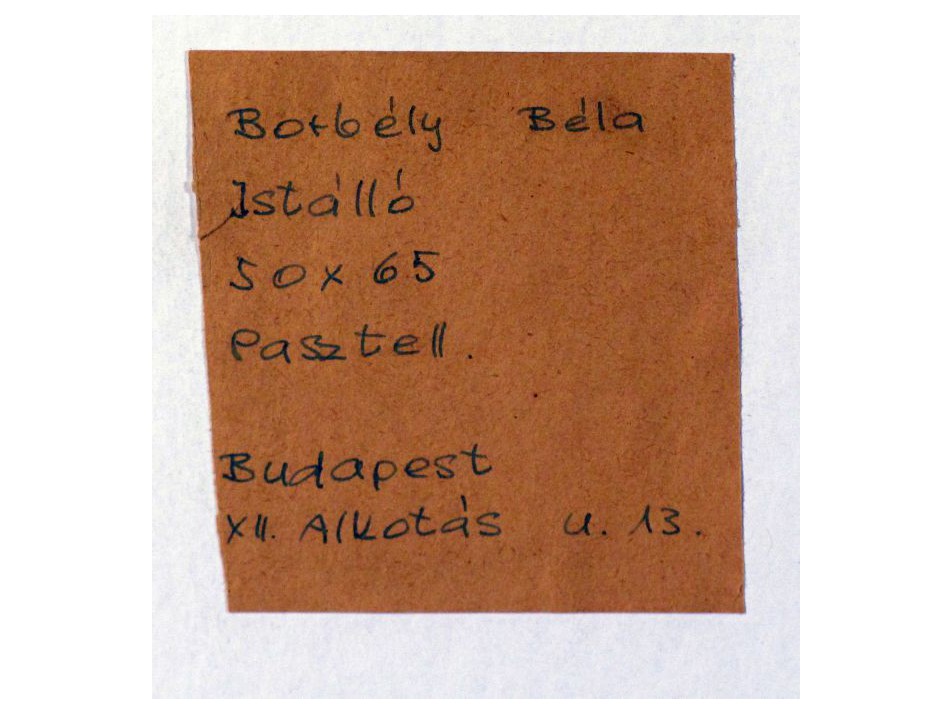 Borbély Béla
Istálló
50 x 65
Pasztell.
Budapest
XII. Alkotás u. 13.